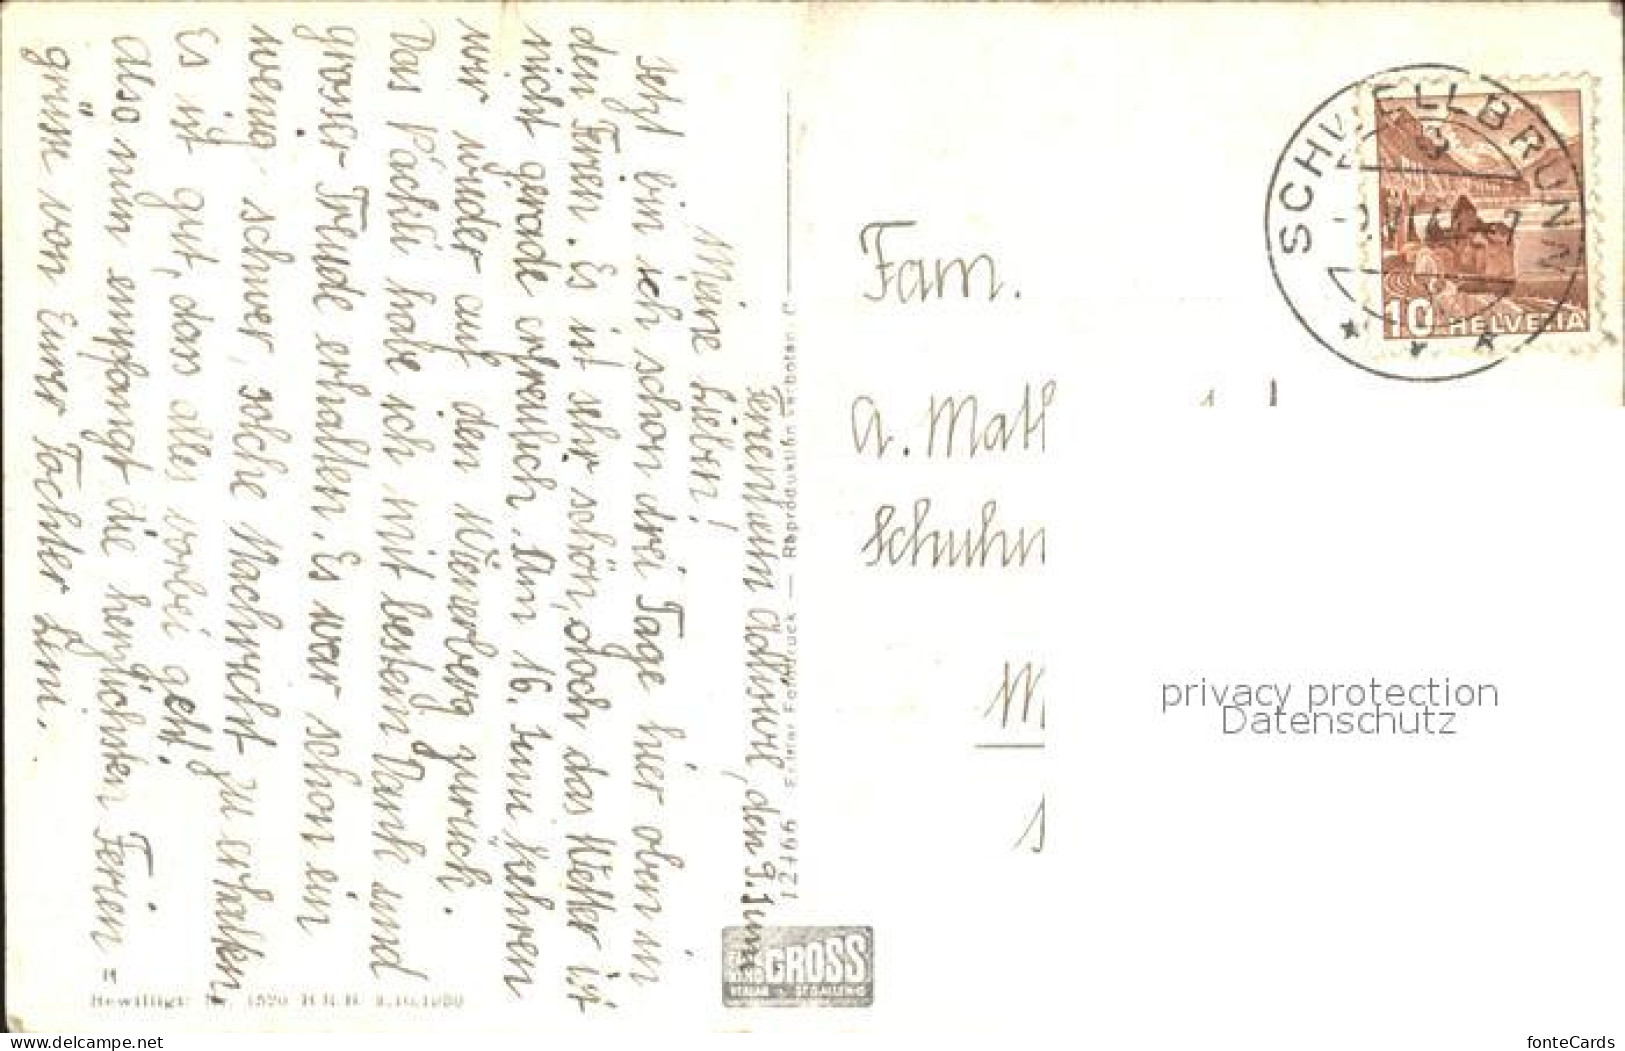 Ferienheim Adlisuhl, den 9. Juni
Meine Lieben!
Jetzt bin ich schon drei Tage hier oben in
den Ferien. Es ist sehr schön, doch das Wetter ist
nicht gerade erfreulich. Am 16. Juni kehren
wir wieder auf den Wienerberg zurück.
Das Päckli habe ich mit bestem Dank und
grosser Freude erhalten. Es war schon ein
wenig schwer, solche Nachricht zu erhalten,
Es ist gut, dass alles vorbei geht.
Also nun empfangt die herzlichsten Ferien
grüsse von Eurer Tochter Lini.
Fam.
A. Math
Schuhm
M
SCHWELLBRUNN
10 HELVETIA
12466 Foto GROSS
VERLAG ST. GALLEN
Reproduktion verboten
Bewilligt Nr. 1520 B.R.B. 3.10.1939
privacy protection
Datenschutz
www.delcampe.net
fonteCards